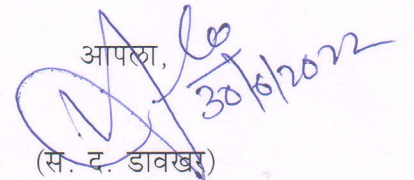 आपला,
30/6/2022
(स. द. डावखर)